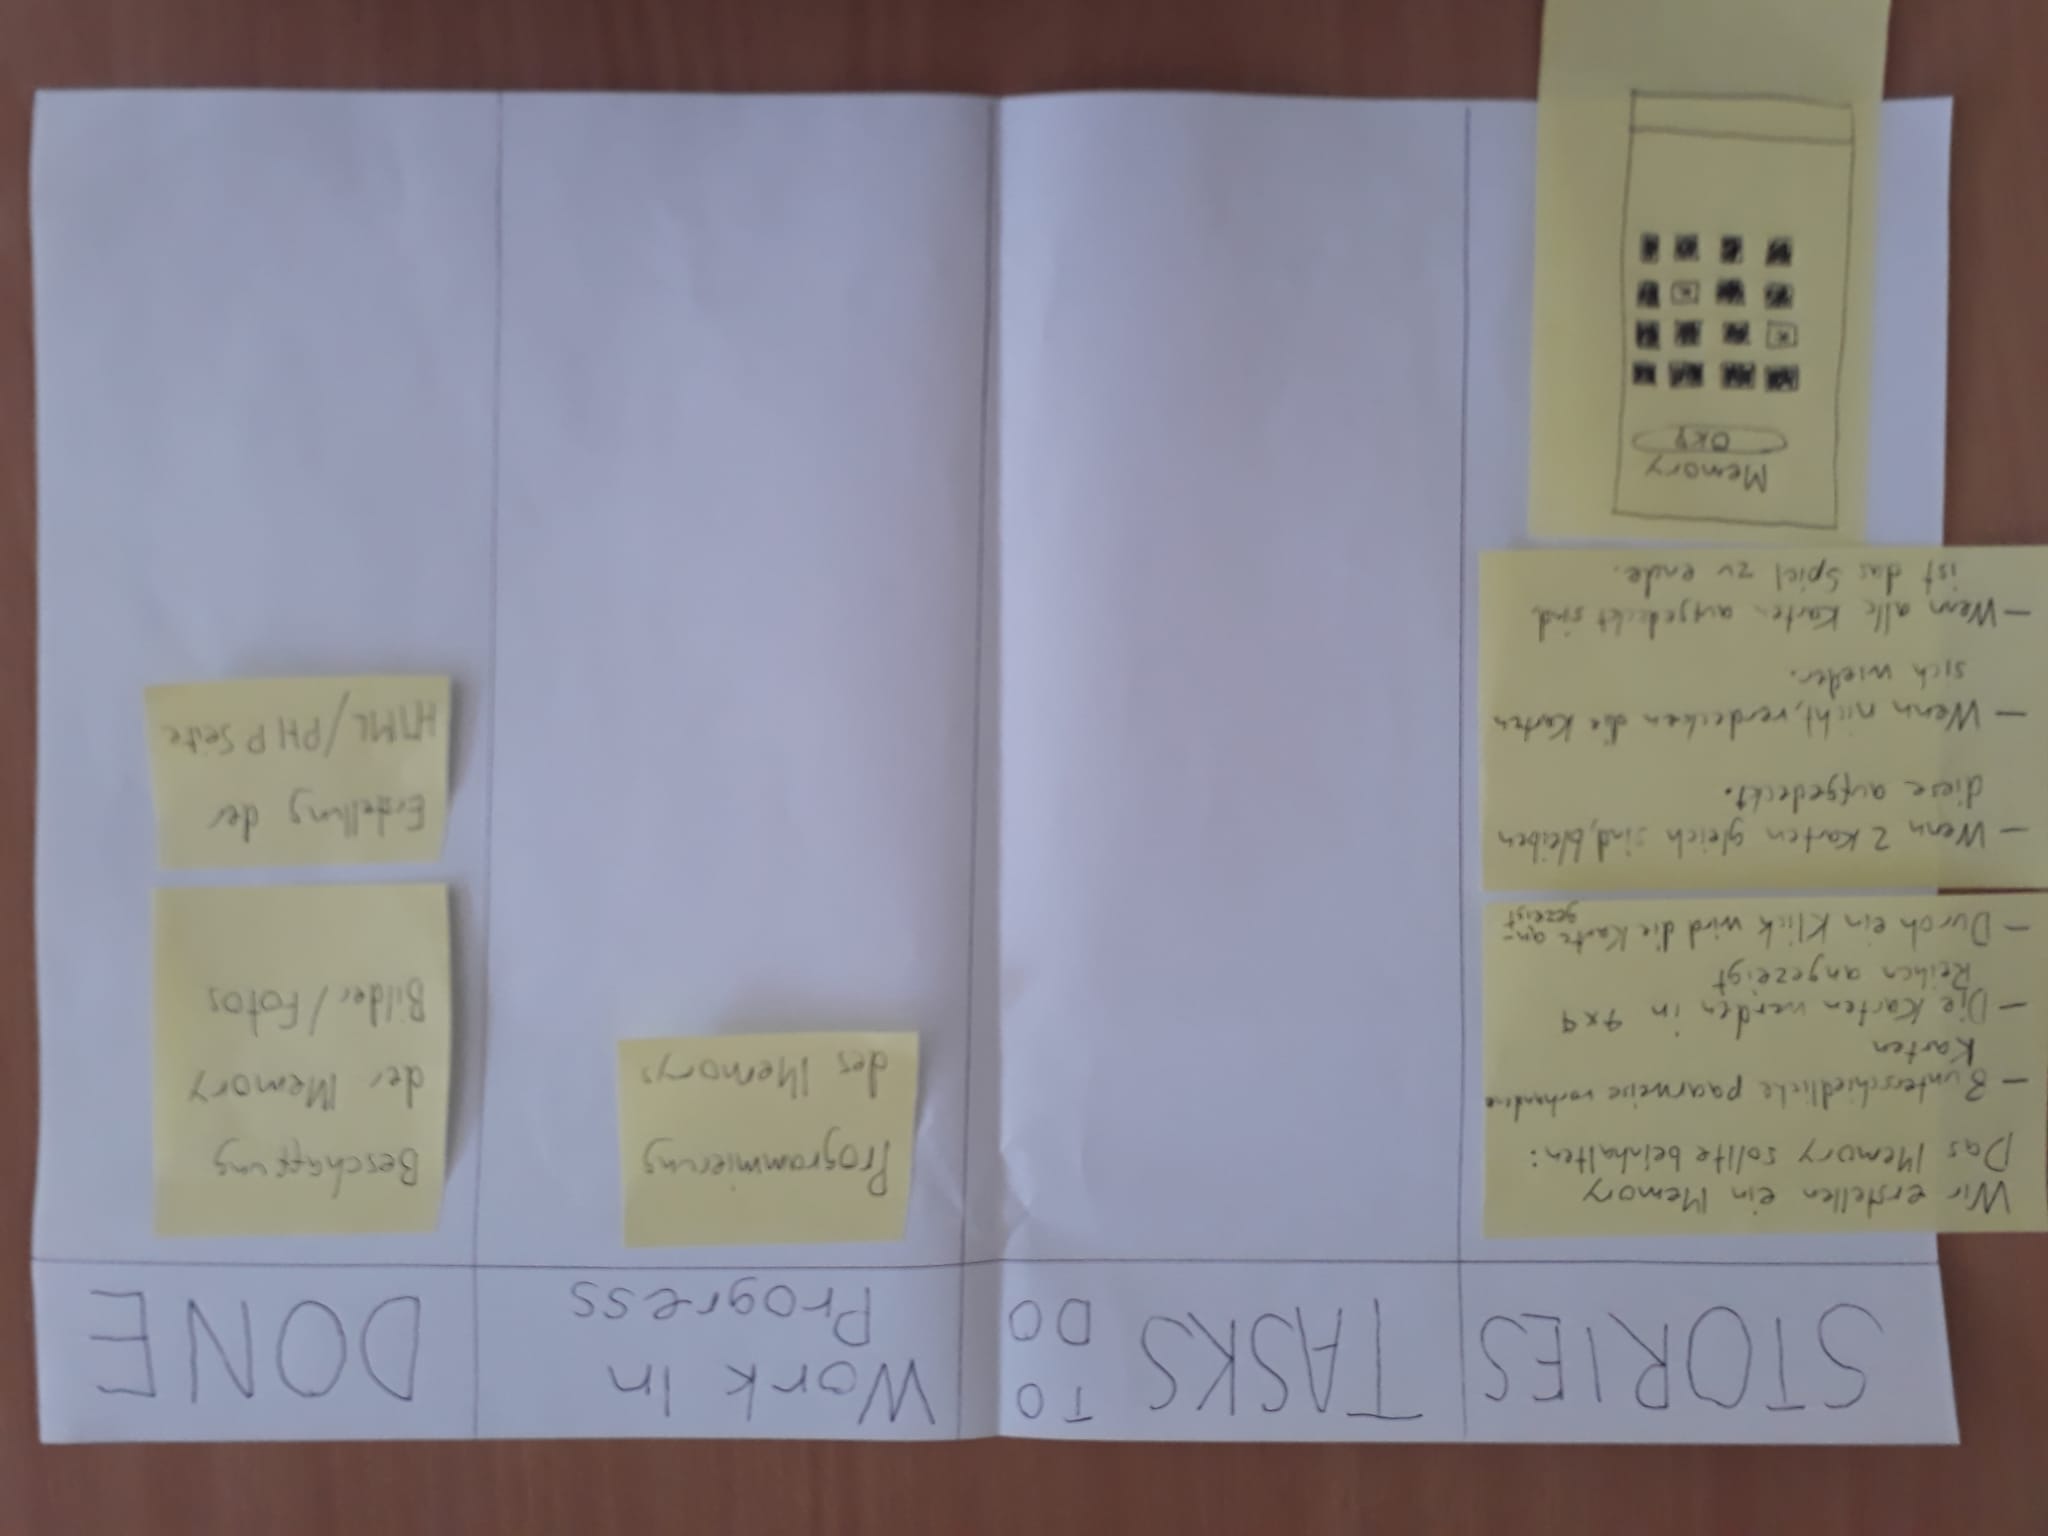 STORIES
TASKS TO DO
Work In Progress
DONE
Wir erstellen ein Memory
Das Memory sollte beinhalten:
- 8 unterschiedliche paarweise vorhandene
Karten
- Die Karten werden in 4x4
Reihen angezeigt
- Durch ein Klick wird die Karte an-
gezeigt
- Wenn 2 Karten gleich sind, bleiben
diese aufgedeckt.
- Wenn nicht, verdecken die Karten
sich wieder.
- Wenn alle Karten aufgedeckt sind,
ist das Spiel zu ende.
Memory
Programmierung
des Memorys
Beschaffung
der Memory
Bilder/Fotos
Erstellung der
HTML/PHP Seite